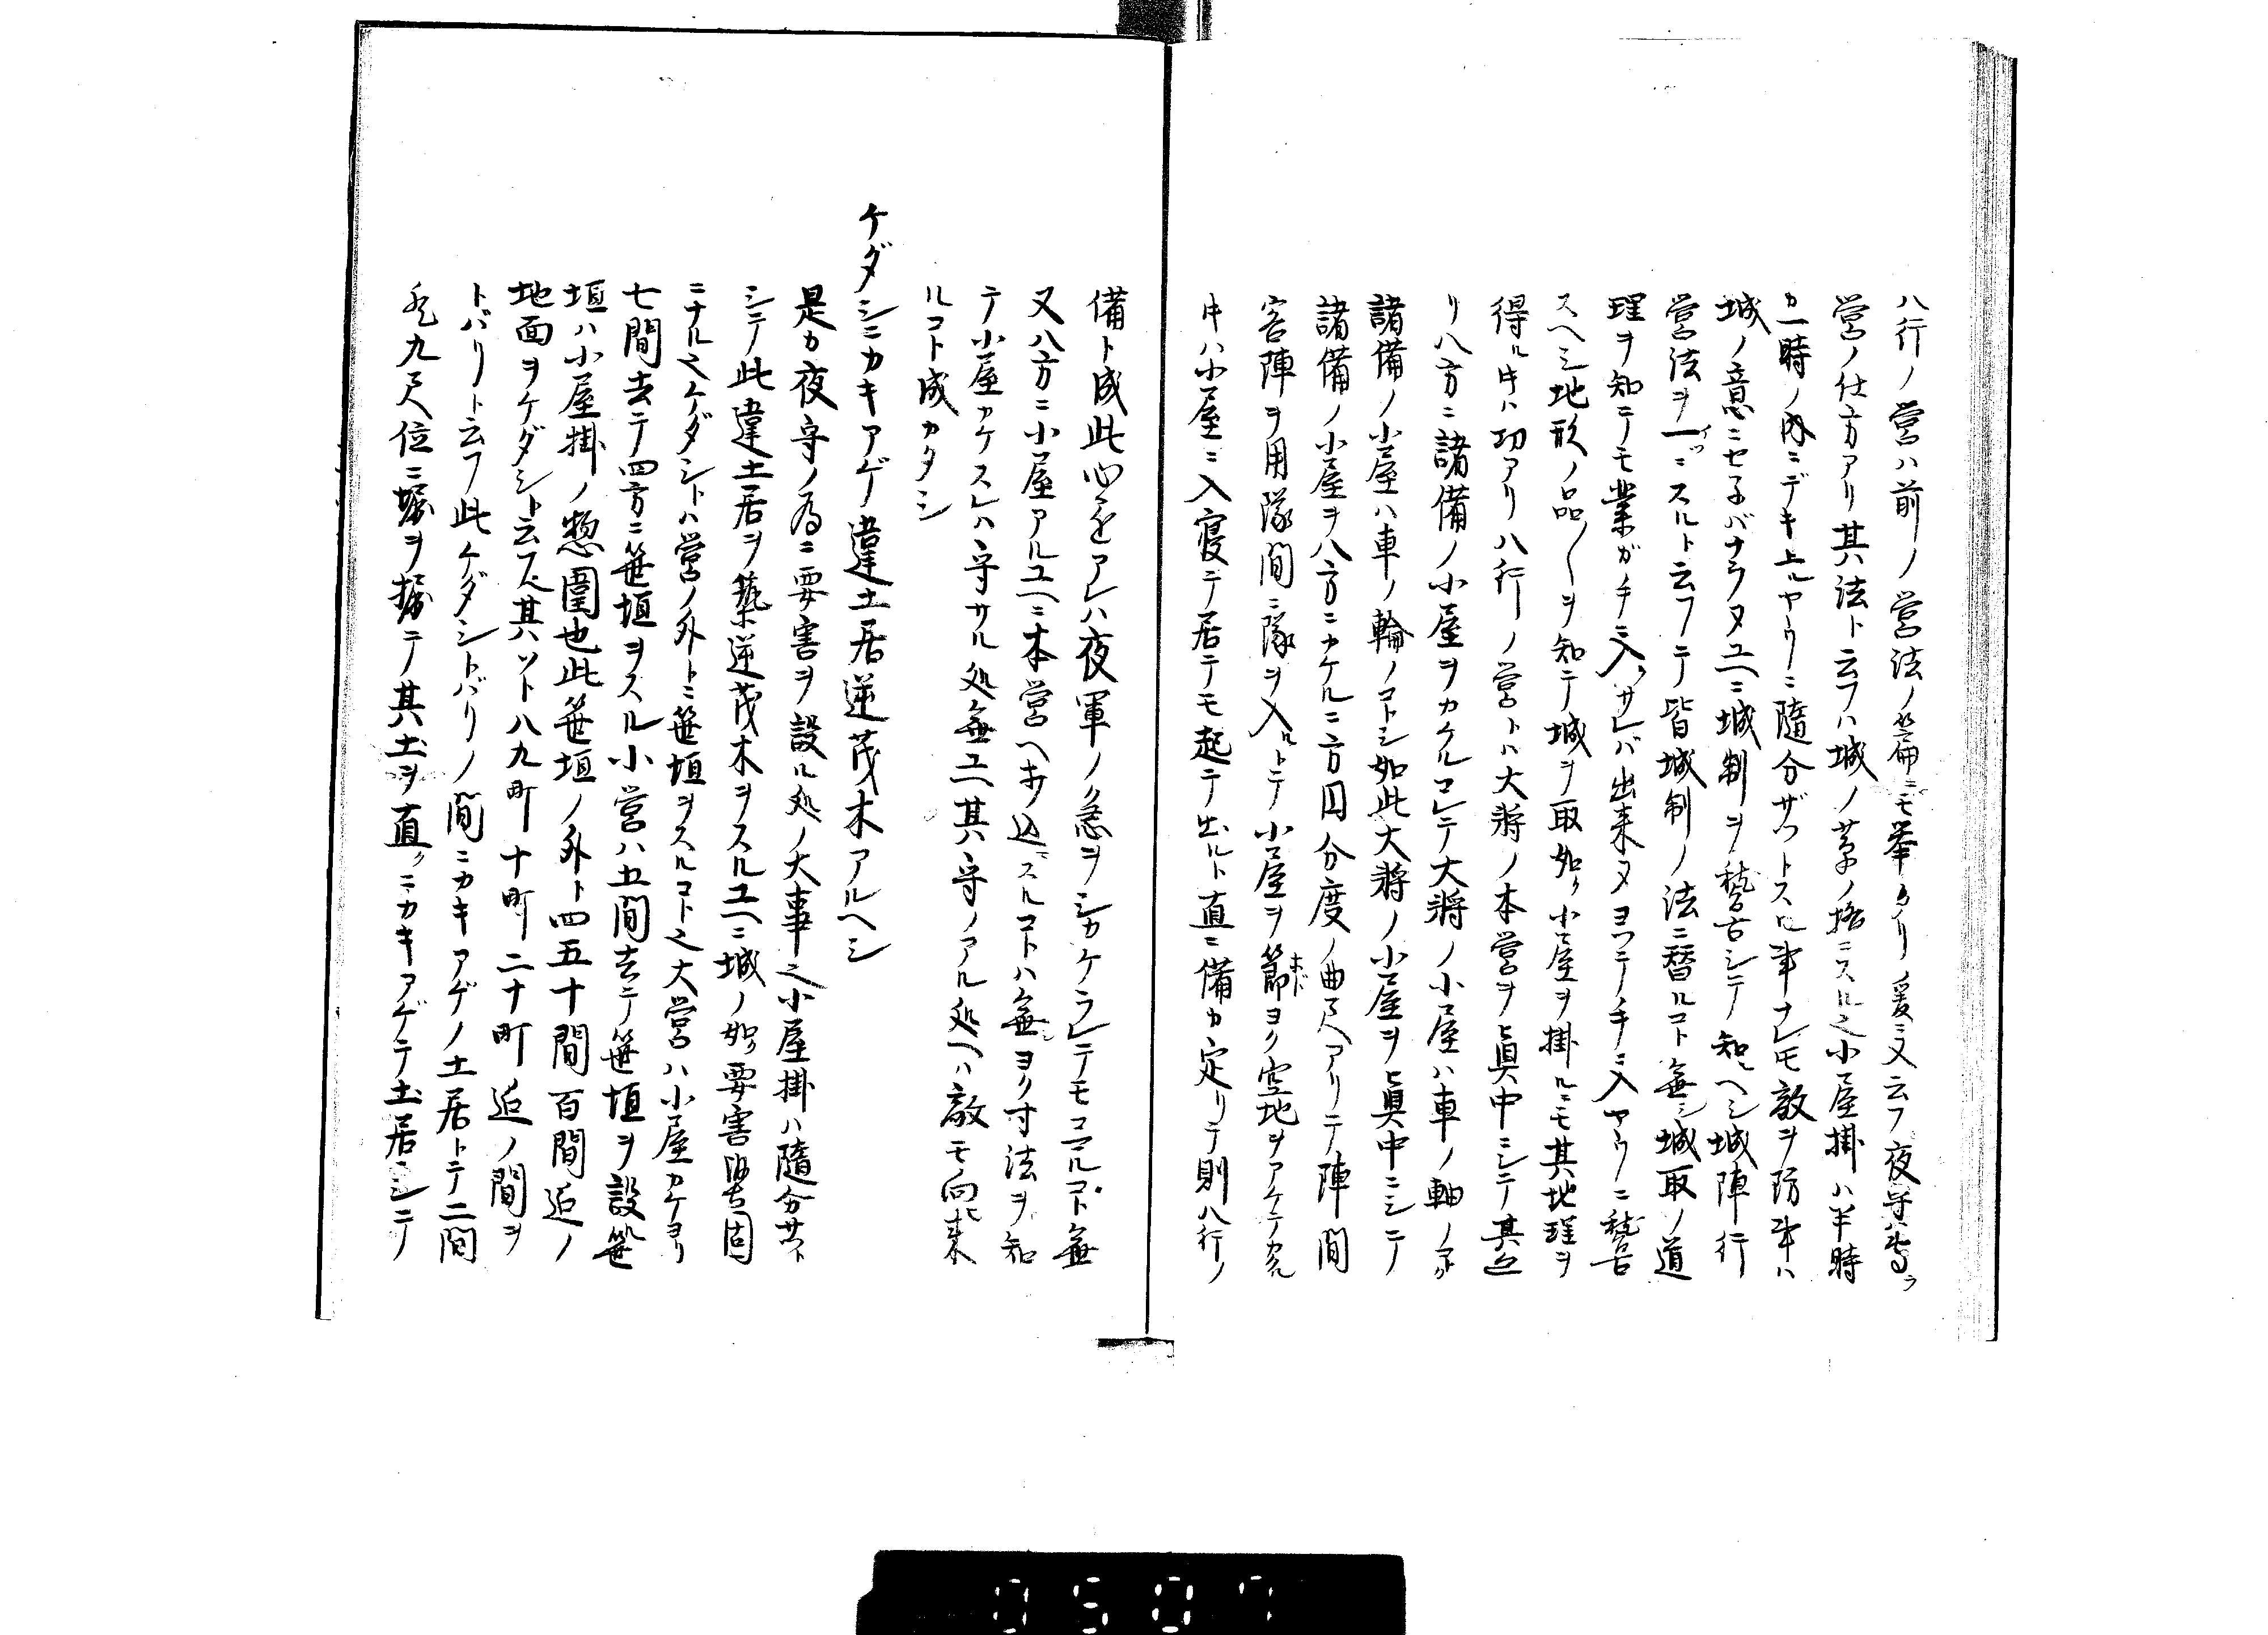 八行ノ営ハ前ノ営法ノ篇ニモ挙タリ爰ニ又云フ夜守ハ専ラ
営ノ仕方アリ其法ト云フハ城ノ草ノ格ニスル之小屋掛ハ半時
カ一時ノ内ニデキ上ルヤウニ随分ザットスル事ナレ𪜈敵ヲ防事ハ
城ノ意ニセネバナラヌユヘニ城制ヲ稽古シテ知ヘシ城陣行
営法ヲ一ツニスルト云フテ皆城制ノ法ニ替ルコト無シ城取ノ道
理ヲ知テモ業ガ手ニ入ラサレバ出来ヌヨツテ手ニ入ヤウニ稽古
スヘシ地形ノ品〱ヲ知テ城ヲ取如ク小屋ヲ掛ルニモ其地理ヲ
得ル𪜈ハ功アリ八行ノ営トハ大将ノ本営ヲ真中ニシテ其廻
リ八方ニ諸備ノ小屋ヲカケルコレテ大将ノ小屋ハ車ノ軸ノ如ク
諸備ノ小屋ハ車ノ輪ノコトシ如此大将ノ小屋ヲ真中ニシテ
諸備ノ小屋ヲ八方ニカケルニ方円分度ノ曲尺アリテ陣間
容陣ヲ用隊間ニ隊ヲ入ルトテ小屋ヲ節ヨク空地ヲアケテカクル
𪜈ハ小屋ニ入寝テ居テモ起テ出ルト直ニ備カ定リテ則八行ノ
備ト成此心をアレハ夜軍ノ急ヲシカケラレテモコマルコト無
又八方ニ小屋アルユヘニ本営ヘキリ込スルコトハ無シヨク寸法ヲ知
テ小屋カケスレハ守サル処無ユヘ其守ノアル処ヘハ敵モ向ヒ来
ルコト成カタシ
ケダシニカキアゲ違土居逆茂木アルヘシ
是カ夜守ノ為ニ要害ヲ設ル処ノ大事之小屋掛ハ随分サット
シテ此違土居ヲ築逆茂木ヲスルユヘニ城ノ如ク要害堅固
ニナル之ケダシトハ営ノ外トニ笹垣ヲスルコト之大営ハ小屋カケヨリ
七間去テ四方ニ笹垣ヲスル小営ハ五間去テ笹垣ヲ設笹
垣ハ小屋掛ノ惣囲也此笹垣ノ外ト四五十間百間迄ノ
地面ヲケダシト云フ又其ソト八九町十町二十町迄ノ間ヲ
トバリト云フ此ケダシトバリノ間ニカキアゲノ土居トテ二間
九尺位ニ堀ヲ掘テ其土ヲ直クニカキアゲテ土居ニシテ